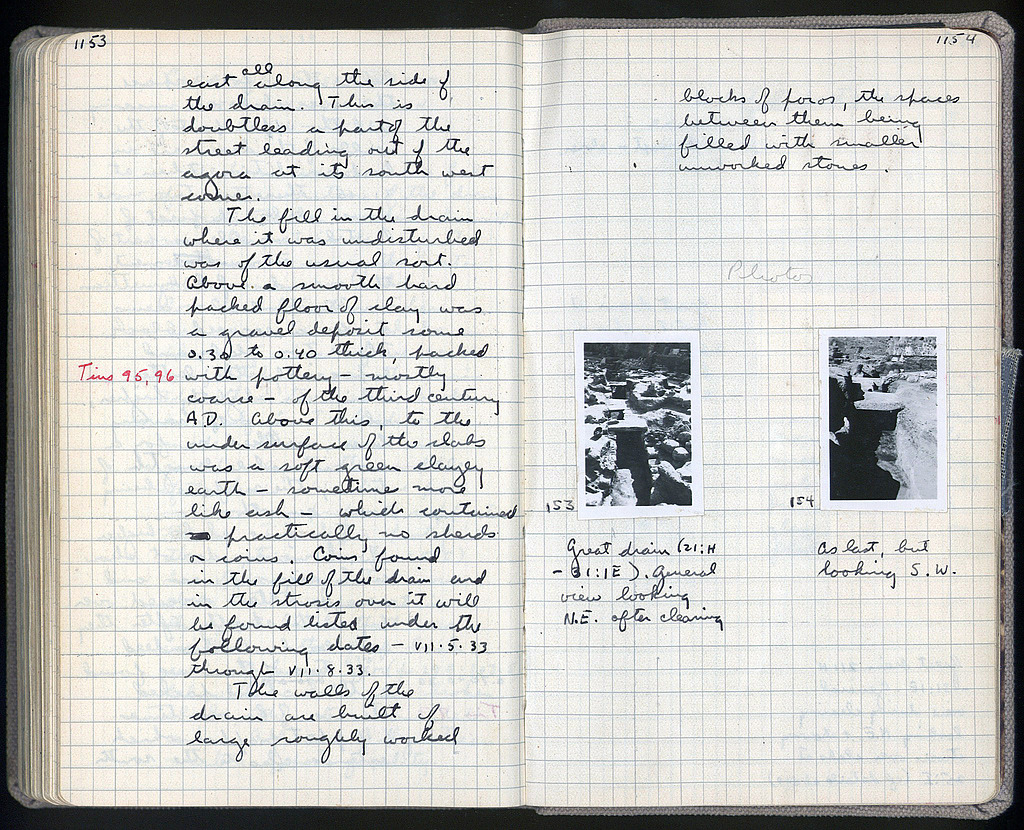 1153
east all along the side of
the drain. This is
doubtless a part of the
street leading out of the
agora at its south west
corner.
The fill in the drain
where it was undisturbed
was of the usual sort.
Above a smooth hard
packed floor of clay was
a gravel deposit some
0.30 to 0.40 thick, packed
Tins 95, 96
with pottery – mostly
coarse – of the third century
A.D. Above this, to the
under surface of the slabs
was a soft green clayey
earth – sometime more
like ash – which contained
practically no sherds
or coins. Coins found
in the fill of the drain and
in the strosis over it will
be found listed under the
following dates – VII·5·33
through VII·8·33.
The walls of the
drain are built of
large roughly worked
1154
blocks of poros, the spaces
between them being
filled with smaller
unworked stones.
Photos
153
Great drain (21:H
– 31:IE). General
view looking
N.E. after clearing
154
As last, but
looking S.W.